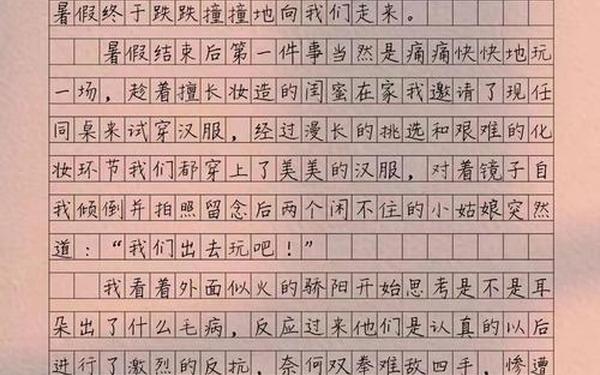 暑假终于跌跌撞撞地向我们走来。
暑假结束后第一件事当然是痛痛快快地玩
一场，趁着擅长妆造的闺蜜在家我邀请了现任
同桌来试穿汉服，经过漫长的挑选和艰难的化
妆环节我们都穿上了美美的汉服，对着镜子自
我倾倒并拍照留念后两个闲不住的小姑娘突然
道：“我们出去玩吧！”
我看着外面似火的骄阳开始思考是不是耳
朵出了什么毛病，反应过来他们是认真的以后
进行了激烈的反抗，奈何双拳难敌四手，惨遭